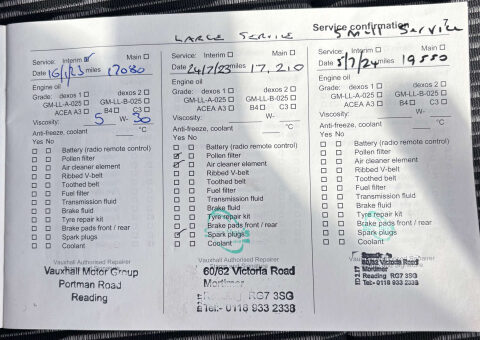 Service confirmation
LARGE SERVICE
Small Service
Service: Interim ☑ Main ☐
Date 16/1/23 miles 17080
Engine oil
Grade: dexos 1 ☐ dexos 2 ☐
GM-LL-A-025 ☐ GM-LL-B-025 ☐
ACEA A3 ☐ B4 ☐ C3 ☐
Viscosity: 5 W- 30
Anti-freeze, coolant °C
Yes No
☐ ☐ Battery (radio remote control)
☐ ☐ Pollen filter
☐ ☐ Air cleaner element
☐ ☐ Ribbed V-belt
☐ ☐ Toothed belt
☐ ☐ Fuel filter
☐ ☐ Transmission fluid
☐ ☐ Brake fluid
☐ ☐ Tyre repair kit
☐ ☐ Brake pads front / rear
☐ ☐ Spark plugs
☐ ☐ Coolant
Vauxhall Authorised Repairer
Vauxhall Motor Group
Portman Road
Reading
Service: Interim ☐ Main ☐
Date 24/7/23 miles 17,210
Engine oil
Grade: dexos 1 ☐ dexos 2 ☐
GM-LL-A-025 ☐ GM-LL-B-025 ☐
ACEA A3 ☐ B4 ☐ C3 ☐
Viscosity: W-
Anti-freeze, coolant °C
Yes No
☐ ☐ Battery (radio remote control)
☑ ☐ Pollen filter
☑ ☐ Air cleaner element
☐ ☐ Ribbed V-belt
☐ ☐ Toothed belt
☐ ☐ Fuel filter
☐ ☐ Transmission fluid
☐ ☐ Brake fluid
☐ ☐ Tyre repair kit
☐ ☐ Brake pads front / rear
☑ ☐ Spark plugs
☐ ☐ Coolant
Vauxhall Authorised Repairer
60/62 Victoria Road
Mortimer
Reading RG7 3SG
Tel:- 0118 933 2338
Service: Interim ☐ Main ☐
Date 5/7/24 miles 19550
Engine oil
Grade: dexos 1 ☐ dexos 2 ☐
GM-LL-A-025 ☐ GM-LL-B-025 ☐
ACEA A3 ☐ B4 ☐ C3 ☐
Viscosity: W-
Anti-freeze, coolant °C
Yes No
☐ ☐ Battery (radio remote control)
☐ ☐ Pollen filter
☐ ☐ Air cleaner element
☐ ☐ Ribbed V-belt
☐ ☐ Toothed belt
☐ ☐ Fuel filter
☐ ☐ Transmission fluid
☐ ☐ Brake fluid
☐ ☐ Tyre repair kit
☐ ☐ Brake pads front / rear
☐ ☐ Spark plugs
☐ ☐ Coolant
60/62 Victoria Road
Mortimer
Reading RG7 3SG
Tel:- 0118 933 2338